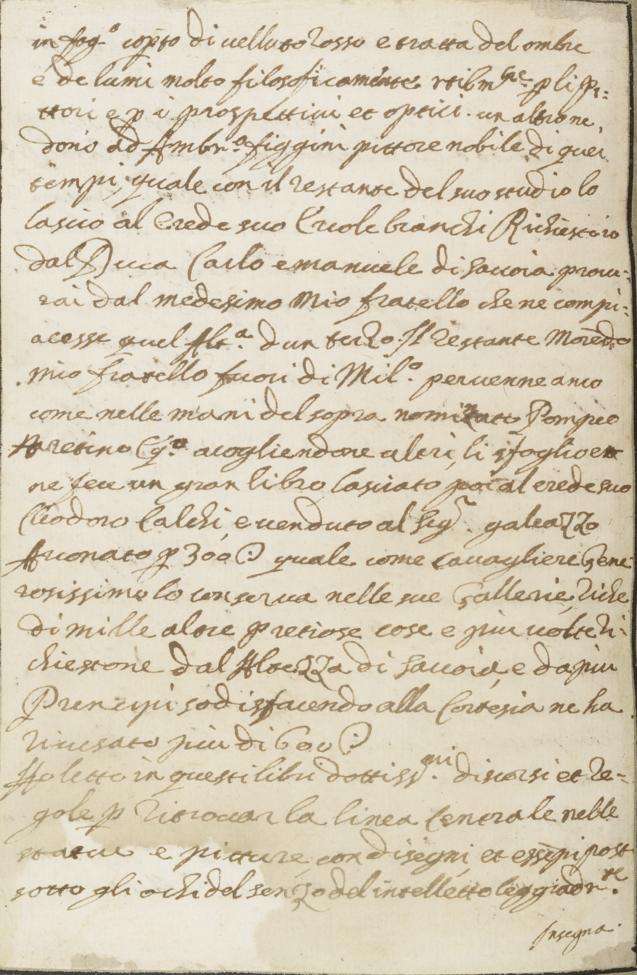 in fog.o copto di velluto rosso e tratta del ombre
e de lumi molto filosoficamente utilm.te p li pi:
ttori e p i prospettivi et optici. un altro ne
dono ad Ambr.o figgini pittore nobile di quei
tempi, quale con il restante del suo studio lo
lascio al erede suo Ercole bianchi Richiesto io
dal Duca Carlo emanuele di savoia procu:
rai dal medesimo mio fratello che ne compi:
acesse quel Alt.a d un terzo. Il restante morendo
mio fratello fuori di Mil.o pervenne anco
come nelle mani del sopra nominato Pompeo
Aretino acogliendone altri, li sfoglio et
ne feci un gran libro lasciato poi al erede suo
Cleodoro Calchi, e venduto al sig.r galeazzo
Avonato p 300 quale come Cavagliere Gene:
rosissimo lo conserva nelle sue Gallerie riche
di mille altre pretiose cose e piu volte ri:
chiestone dal Altezza di savoia, e da piu
Prencipi sodisfacendo alla Cortesia ne ha
ricusato piu di 600
Ho letto in questi libri dottiss.mi discorsi et re-
gole p ritrovar la linea Centrale nelle
statue e pitture, con disegni, et essepi post
sotto gli ochi del senzo del intelletto leggiadr.te
Insegna